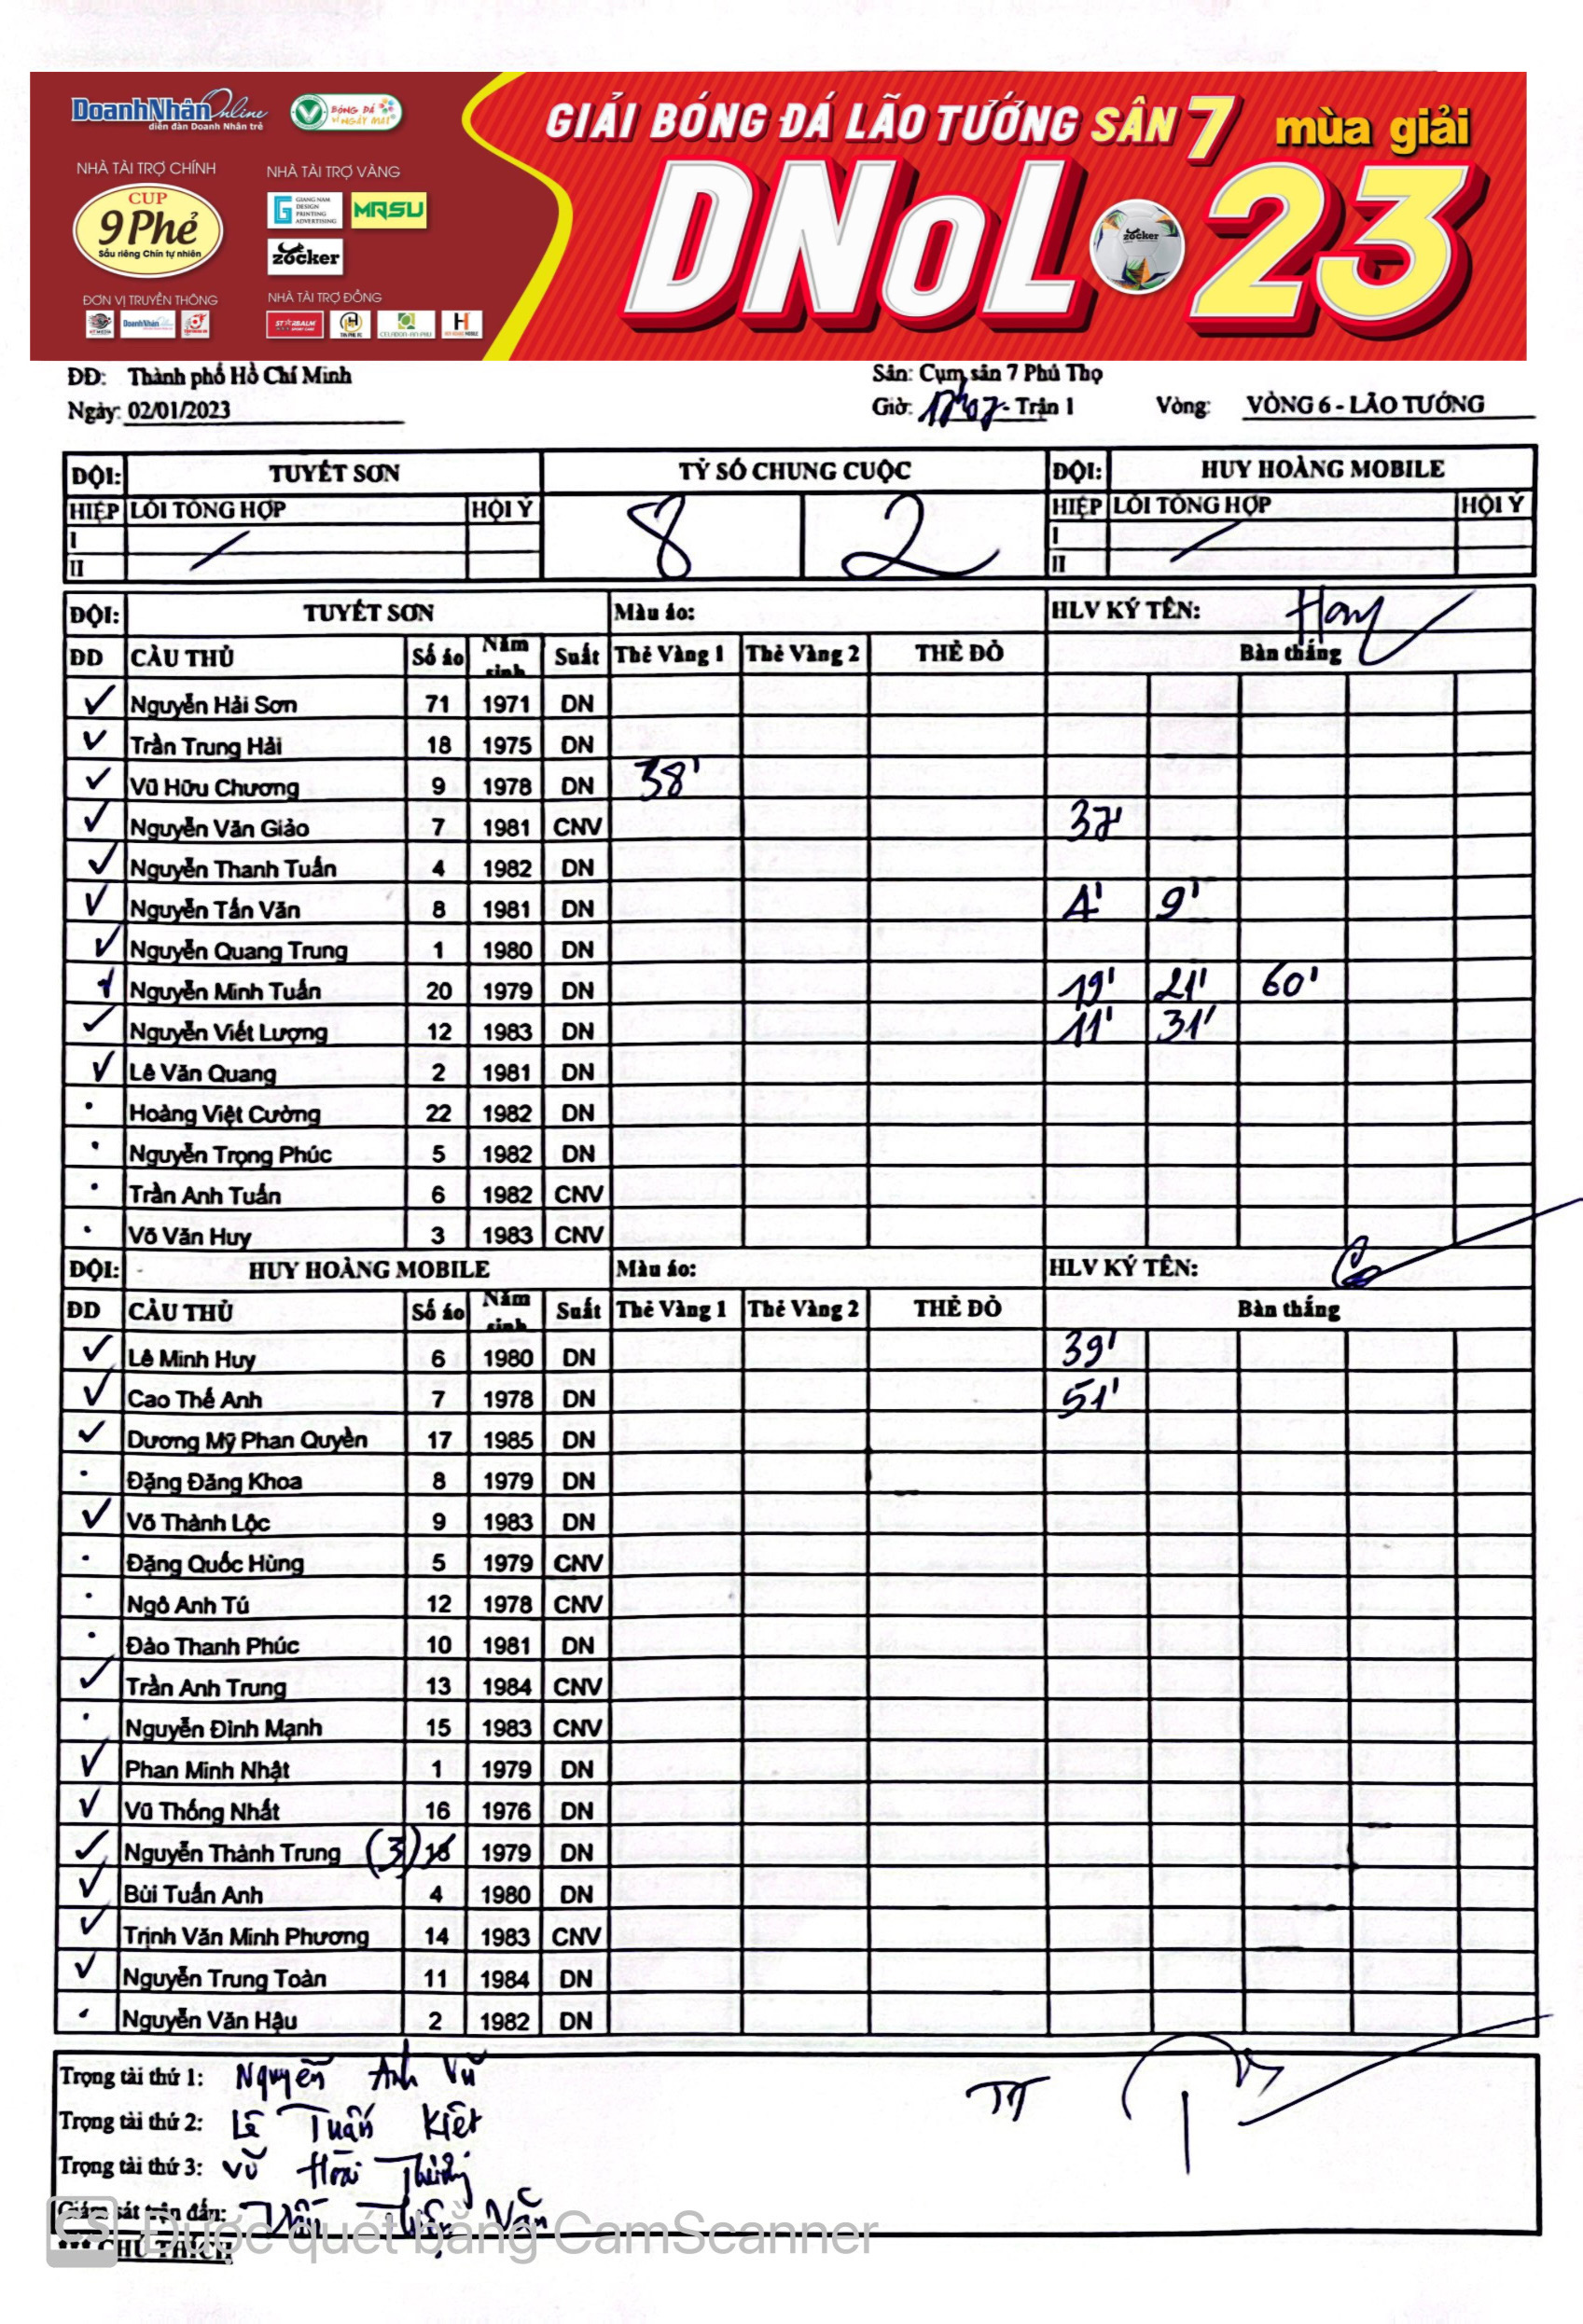 DoanhNhân Online
diễn đàn Doanh Nhân trẻ
BÓNG ĐÁ
VÌ NGÀY MAI
GIẢI BÓNG ĐÁ LÃO TƯỚNG SÂN 7 mùa giải
DNoL 23
NHÀ TÀI TRỢ CHÍNH
NHÀ TÀI TRỢ VÀNG
CUP
9 Phẻ
Sầu riêng Chín tự nhiên
GIANG NAM
DESIGN
PRINTING
ADVERTISING
MRSU
zocker
zocker
ĐƠN VỊ TRUYỀN THÔNG
NHÀ TÀI TRỢ ĐỒNG
DoanhNhân
STARBALM
CELADON-AN PHU
ĐĐ: Thành phố Hồ Chí Minh
Sân: Cụm sân 7 Phú Thọ
Ngày: 02/01/2023
Giờ: 17h07 - Trận 1 Vòng: VÒNG 6 - LÃO TƯỚNG
ĐỘI: TUYẾT SƠN TỶ SỐ CHUNG CUỘC ĐỘI: HUY HOÀNG MOBILE
HIỆP LỖI TỔNG HỢP HỘI Ý 8 2 HIỆP LỖI TỔNG HỢP HỘI Ý
I I
II II
ĐỘI: TUYẾT SƠN Màu áo: HLV KÝ TÊN:
ĐD CẦU THỦ Số áo Năm sinh Suất Thẻ Vàng 1 Thẻ Vàng 2 THẺ ĐỎ Bàn thắng
Nguyễn Hải Sơn 71 1971 DN
Trần Trung Hải 18 1975 DN
Vũ Hữu Chương 9 1978 DN 38'
Nguyễn Văn Giảo 7 1981 CNV 37'
Nguyễn Thanh Tuấn 4 1982 DN
Nguyễn Tấn Văn 8 1981 DN 4' 9'
Nguyễn Quang Trung 1 1980 DN
Nguyễn Minh Tuấn 20 1979 DN 19' 21' 60'
Nguyễn Viết Lượng 12 1983 DN 11' 31'
Lê Văn Quang 2 1981 DN
Hoàng Việt Cường 22 1982 DN
Nguyễn Trọng Phúc 5 1982 DN
Trần Anh Tuấn 6 1982 CNV
Võ Văn Huy 3 1983 CNV
ĐỘI: HUY HOÀNG MOBILE Màu áo: HLV KÝ TÊN:
ĐD CẦU THỦ Số áo Năm sinh Suất Thẻ Vàng 1 Thẻ Vàng 2 THẺ ĐỎ Bàn thắng
Lê Minh Huy 6 1980 DN 39'
Cao Thế Anh 7 1978 DN 51'
Dương Mỹ Phan Quyền 17 1985 DN
Đặng Đăng Khoa 8 1979 DN
Võ Thành Lộc 9 1983 DN
Đặng Quốc Hùng 5 1979 CNV
Ngô Anh Tú 12 1978 CNV
Đào Thanh Phúc 10 1981 DN
Trần Anh Trung 13 1984 CNV
Nguyễn Đình Mạnh 15 1983 CNV
Phan Minh Nhật 1 1979 DN
Vũ Thống Nhất 16 1976 DN
Nguyễn Thành Trung (3) 1979 DN
Bùi Tuấn Anh 4 1980 DN
Trịnh Văn Minh Phương 14 1983 CNV
Nguyễn Trung Toàn 11 1984 DN
Nguyễn Văn Hậu 2 1982 DN
Trọng tài thứ 1: Nguyễn Anh Vũ
TT
Trọng tài thứ 2: Lê Tuấn Kiệt
Trọng tài thứ 3: Vũ Hoài
Giám sát trận đấu: Văn
CS Được quét bằng CamScanner
CHÚ THÍCH